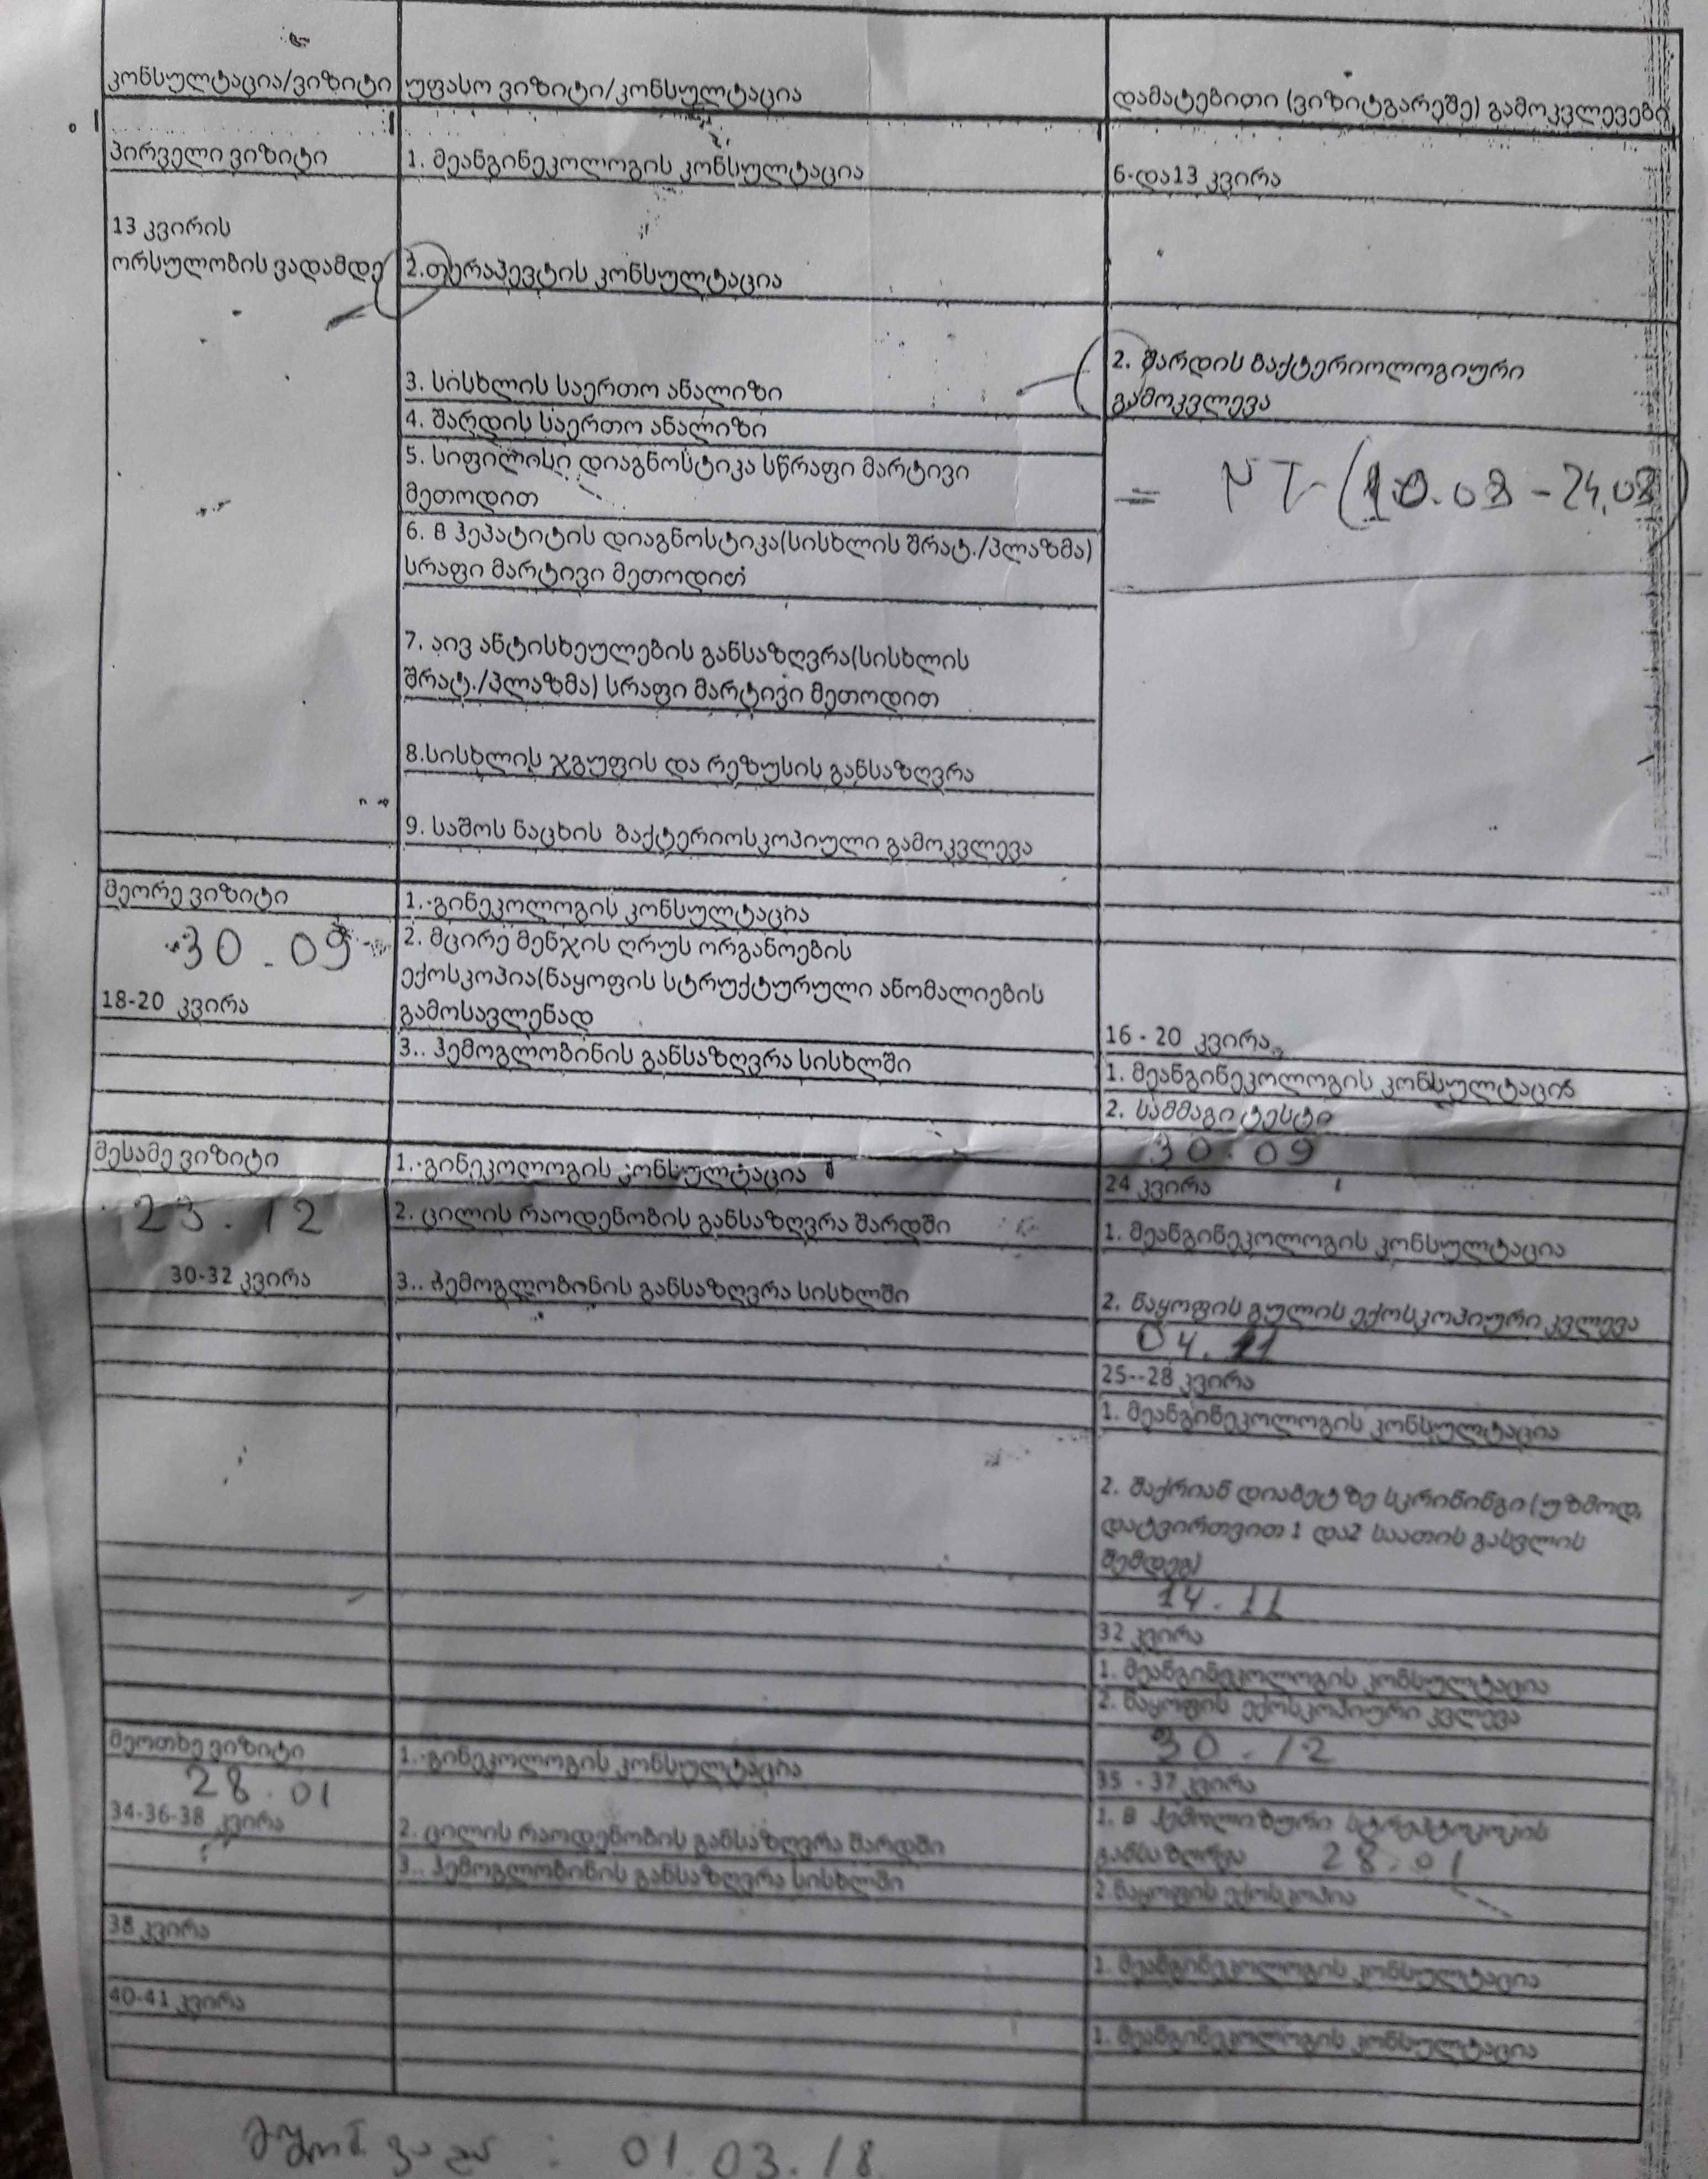 კონსულტაცია/ვიზიტი
უფასო ვიზიტი/კონსულტაცია
დამატებითი (ვიზიტგარეშე) გამოკვლევები
პირველი ვიზიტი
1. მეანგინეკოლოგის კონსულტაცია
6-და13 კვირა
13 კვირის
ორსულობის ვადამდე
2.თერაპევტის კონსულტაცია
3. სისხლის საერთო ანალიზი
2. შარდის ბაქტერიოლოგიური
გამოკვლევა
4. შარდის საერთო ანალიზი
5. სიფილისი დიაგნოსტიკა სწრაფი მარტივი
მეთოდით
= NT (10.08 - 24.08)
6. B ჰეპატიტის დიაგნოსტიკა(სისხლის შრატ./პლაზმა)
სრაფი მარტივი მეთოდით
7. აივ ანტისხეულების განსაზღვრა(სისხლის
შრატ./პლაზმა) სრაფი მარტივი მეთოდით
8.სისხლის ჯგუფის და რეზუსის განსაზღვრა
9. საშოს ნაცხის ბაქტერიოსკოპიული გამოკვლევა
მეორე ვიზიტი
30.09
18-20 კვირა
1.-გინეკოლოგის კონსულტაცია
2. მცირე მენჯის ღრუს ორგანოების
ექოსკოპია(ნაყოფის სტრუქტურული ანომალიების
გამოსავლენად
3.. ჰემოგლობინის განსაზღვრა სისხლში
16 - 20 კვირა
1. მეანგინეკოლოგის კონსულტაცია
2. სამმაგი ტესტი
30.09
მესამე ვიზიტი
23.12
30-32 კვირა
1.-გინეკოლოგის კონსულტაცია
2. ცილის რაოდენობის განსაზღვრა შარდში
3.. ჰემოგლობინის განსაზღვრა სისხლში
24 კვირა
1. მეანგინეკოლოგის კონსულტაცია
2. ნაყოფის გულის ექოსკოპიური კვლევა
04.11
25--28 კვირა
1. მეანგინეკოლოგის კონსულტაცია
2. შაქრიან დიაბეტზე სკრინინგი (უზმოდ,
დატვირთვით 1 და2 საათის გასვლის
შემდეგ)
14.11
32 კვირა
1. მეანგინეკოლოგის კონსულტაცია
2. ნაყოფის ექოსკოპიური კვლევა
30.12
მეოთხე ვიზიტი
28.01
34-36-38 კვირა
1.-გინეკოლოგის კონსულტაცია
2. ცილის რაოდენობის განსაზღვრა შარდში
3.. ჰემოგლობინის განსაზღვრა სისხლში
35 - 37 კვირა
1. B ჰემოლიზური სტრეპტოკოკის
განსაზღვრა 28.01
2.ნაყოფის ექოსკოპია
38 კვირა
1. მეანგინეკოლოგის კონსულტაცია
40-41 კვირა
1. მეანგინეკოლოგის კონსულტაცია
ვადა : 01.03.18